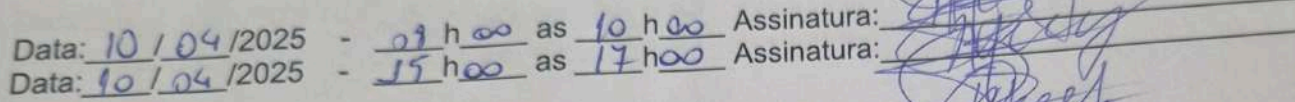 Data: 10 / 04 /2025 - 09 h 00 as 10 h 00 Assinatura:
Data: 10 / 04 /2025 - 15 h 00 as 17 h 00 Assinatura: